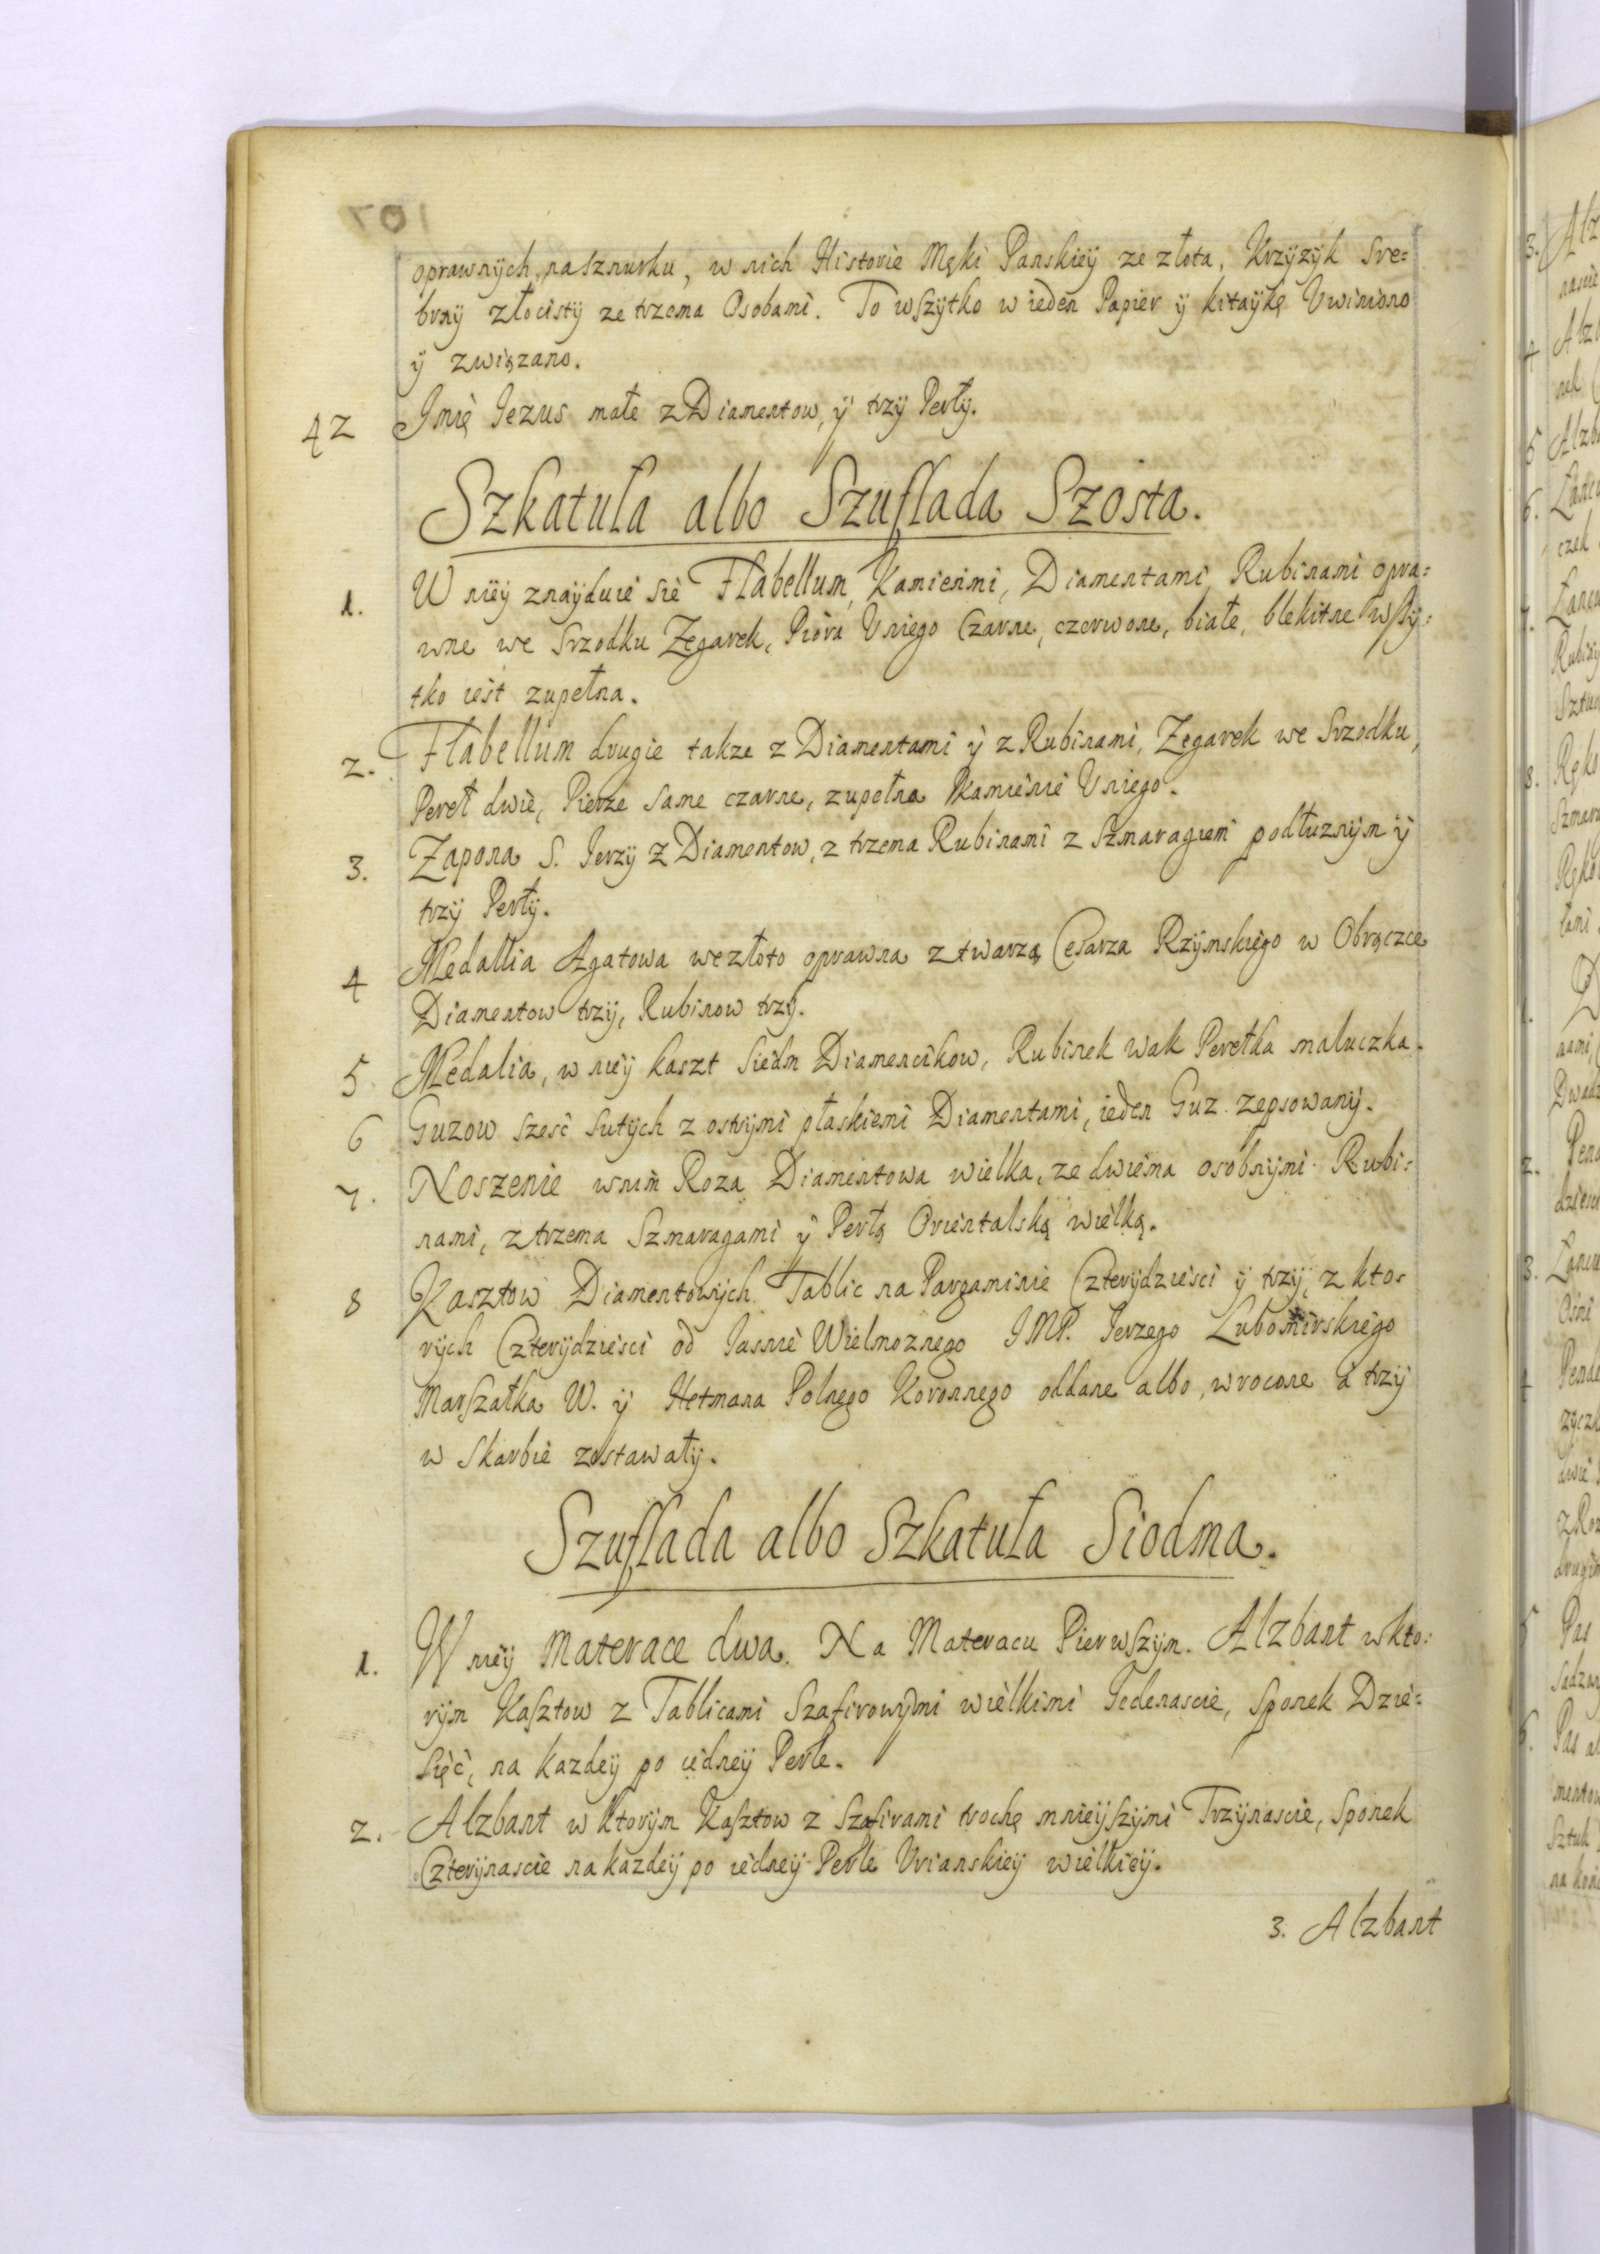 oprawnÿch, na sznurku, w nich Historie Męki Panskieÿ ze złota, Krzÿzÿk Sre=
brnÿ złocistÿ ze trzema Osobami. To wszÿtko w ieden Papier ÿ kitaÿkę Uwiniono
ÿ związano.
42 Imię Iezus małe z Diamentow, ÿ trzÿ Perłÿ.
Szkatuła albo Szuflada Szosta.
1. W nieÿ znaÿduie sie Flabellum, Kamieńmi, Diamentami, Rubinami opra=
wne we srzodku Zegarek, Piora Uniego Czarne, czerwone, białe, blekitne wszÿ=
tko iest zupełna.
2. Flabellum drugie takze z Diamentami ÿ z Rubinami, Zegarek we Srzodku,
Pereł dwie, Pierze same czarne, zupełna Kamienie Uniego.
3. Zapona S. Ierzÿ z Diamentow, z trzema Rubinami z Szmaragiem podłuznÿm ÿ
trzÿ Perłÿ.
4 Medallia Agatowa wezłoto oprawna z twarzą Cesarza Rzÿmskiego w Obrączce
Diamentow trzÿ, Rubinow trzÿ.
5 Medalia, w nieÿ kaszt siedm Diamencikow, Rubinek wak Perełka maluczka.
6 Guzow szesc sutÿch z ostrÿmi płaskiemi Diamentami, ieden Guz zepsowanÿ.
7. Noszenie wnim Roza Diamentowa wielka, ze dwiema osobnÿmi Rubi=
nami, z trzema Szmaragami ÿ Perłą Orientalską wielką.
8 Kasztow Diamentowÿch Tablic na Pargaminie Czterÿdziesci ÿ trzÿ, z kto=
rÿch Czterÿdziesci od Iasnie Wielmoznego IMP. Ierzego Lubomirskiego
Marszałka W. ÿ Hetmana Polnego Koronnego oddane albo, wrocone a trzÿ
w Skarbie zostawałÿ.
Szuflada albo Szkatuła Siodma.
1. W nieÿ Materace dwa. Na Materacu Pierwszÿm. Alzbant wkto=
rÿm Kasztow z Tablicami Szafirowÿmi wielkimi Iedenascie, sponek Dzie=
sięć, na kazdeÿ po iedneÿ Perle.
2. Alzbant w ktorÿm Kasztow z Szafirami trochę mnieÿszÿmi Trzÿnascie, Sponek
Czterÿnascie na kazdeÿ po iedneÿ Perle Urianskieÿ wielkieÿ.
3. Alzbant